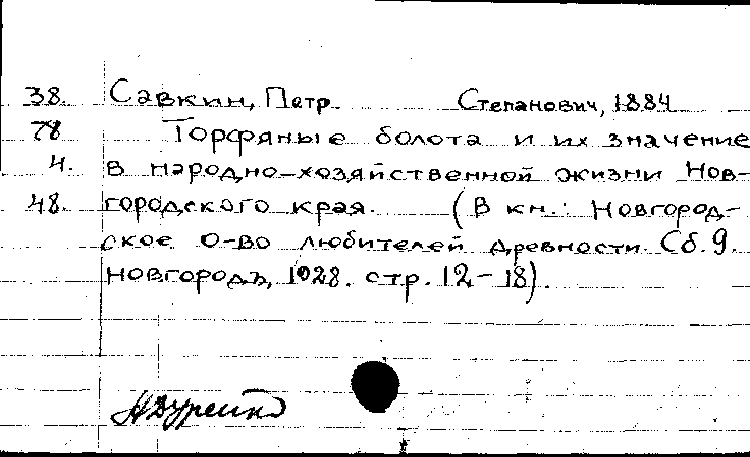 38. Савкин, Петр Степанович, 1884
78 Торфяные болота и их значение
4. в народно-хозяйственной жизни Нов-
48. городского края. (В кн.: Новгород-
ское о-во любителей древности. Сб. 9.
Новгородъ, 1928. стр. 12-18).